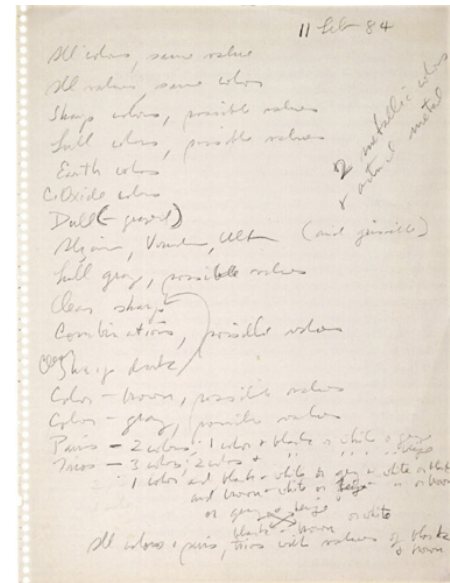 11 Feb 84
All colors, same value
All values, same color
Sharp colors, possible values
Full colors, possible values
Earth colors
Oxide colors
Dull
2 metallic colors
& actual metal
Full gray, possible values
Clear sharp
Combinations, possible values
Sharp dark
Color – brown, possible values
Color – gray, possible values
Pairs – 2 colors; 1 color + black or white or gray
Trios – 3 colors; 2 colors +
1 color and black + white or gray
and brown + white or beige
or gray + beige
black brown or white
All colors + pairs, trios with values of black
& brown